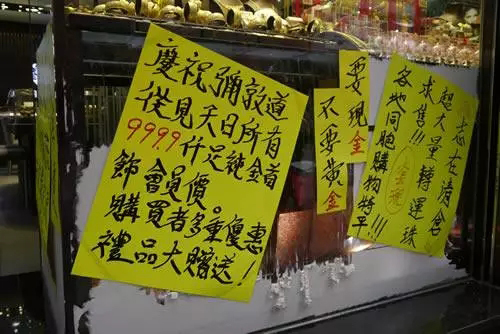 慶祝彌敦道
從見天日所有
999.9 仟足純金首
飾會員價。
購買者多重優惠
禮品大贈送!
要現金
不要黃金
志在清倉
超大量轉運珠
求售!!!
各地同胞購物特平!!!